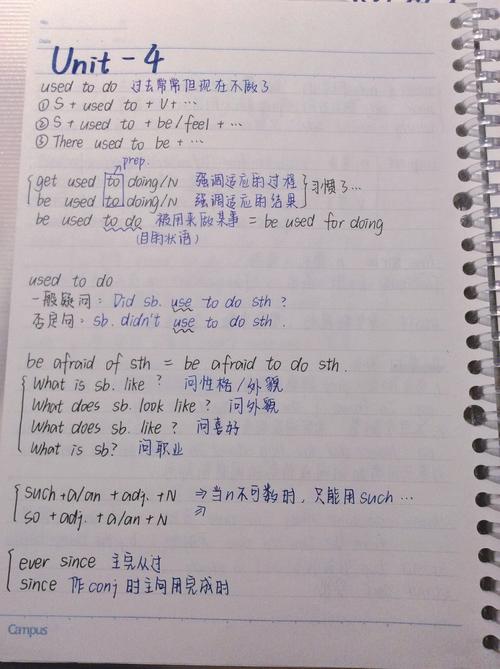 No.
Date
Unit - 4
used to do 过去常常但现在不做了
① S + used to + V + …
② S + used to + be/feel + …
③ There used to be + …
prep.
get used to doing/N 强调适应的过程
be used to doing/N 强调适应的结果
习惯了…
be used to do 被用来做某事 = be used for doing
(目的状语)
used to do
一般疑问: Did sb. use to do sth ?
否定句: sb. didn't use to do sth .
be afraid of sth = be afraid to do sth.
What is sb. like ? 问性格/外貌
What does sb. look like ? 问外貌
What does sb. like ? 问喜好
What is sb? 问职业
such + a/an + adj. + N ⇒ 当n不可数时, 只能用such …
so + adj. + a/an + N ⇒
ever since 主完从过
since 作conj 时主句用完成时
Campus